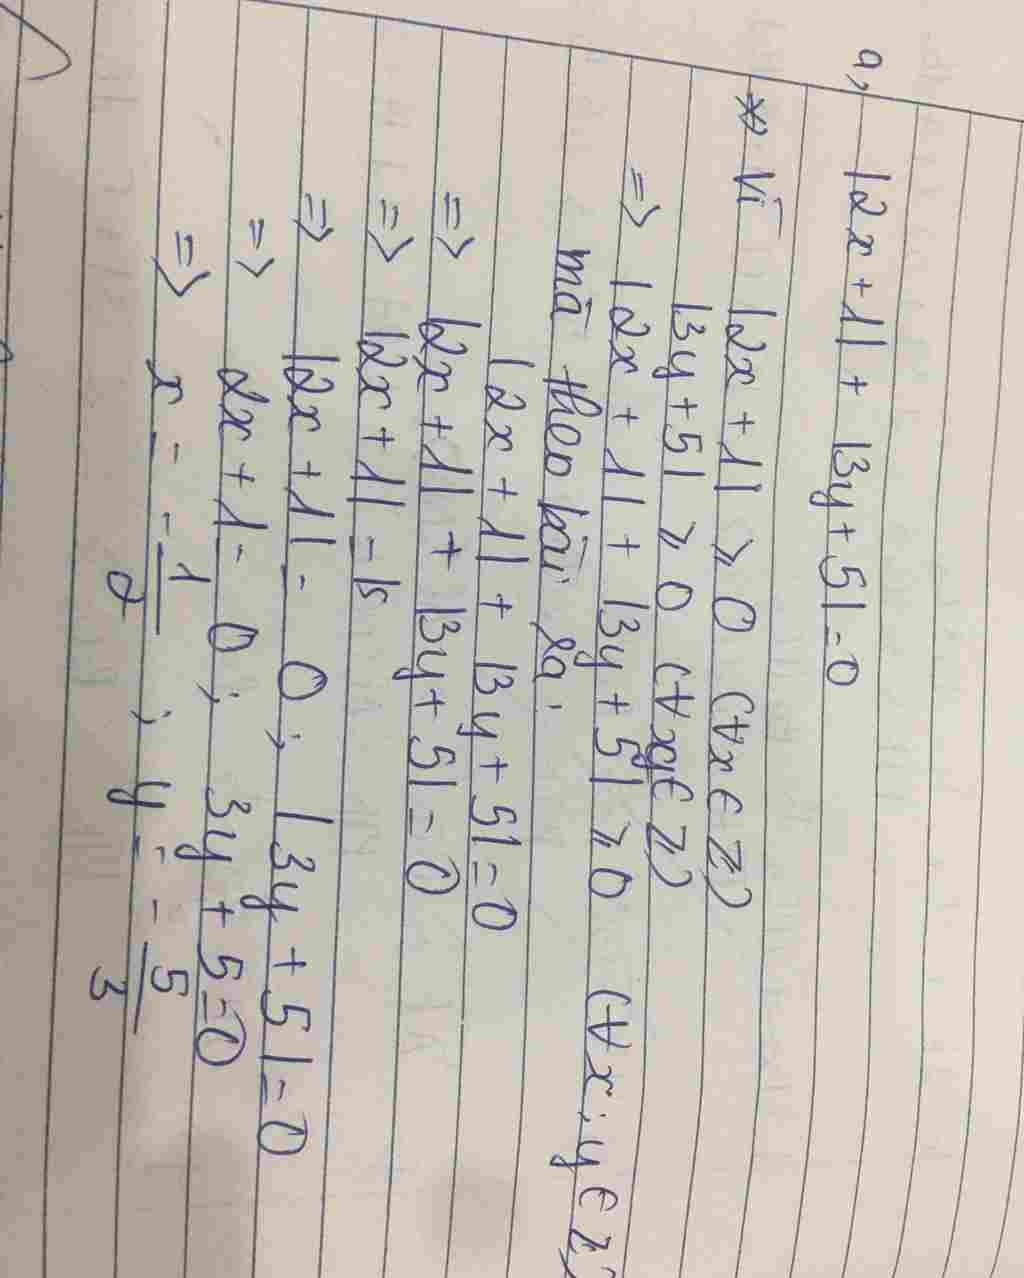 a, |2x + 1| + |3y + 5| = 0
Vì |2x + 1| ⩾ 0 (∀x ∈ Z)
|3y + 5| ⩾ 0 (∀xy ∈ Z)
=> |2x + 1| + |3y + 5| ⩾ 0 (∀x ; y ∈ Z)
mà theo bài ra:
|2x + 1| + |3y + 5| = 0
=> |2x + 1| + |3y + 5| = 0
=> |2x + 1| =
=> |2x + 1| = 0 ; |3y + 5| = 0
=> 2x + 1 = 0 ; 3y + 5 = 0
=> x = -1/2 ; y = -5/3